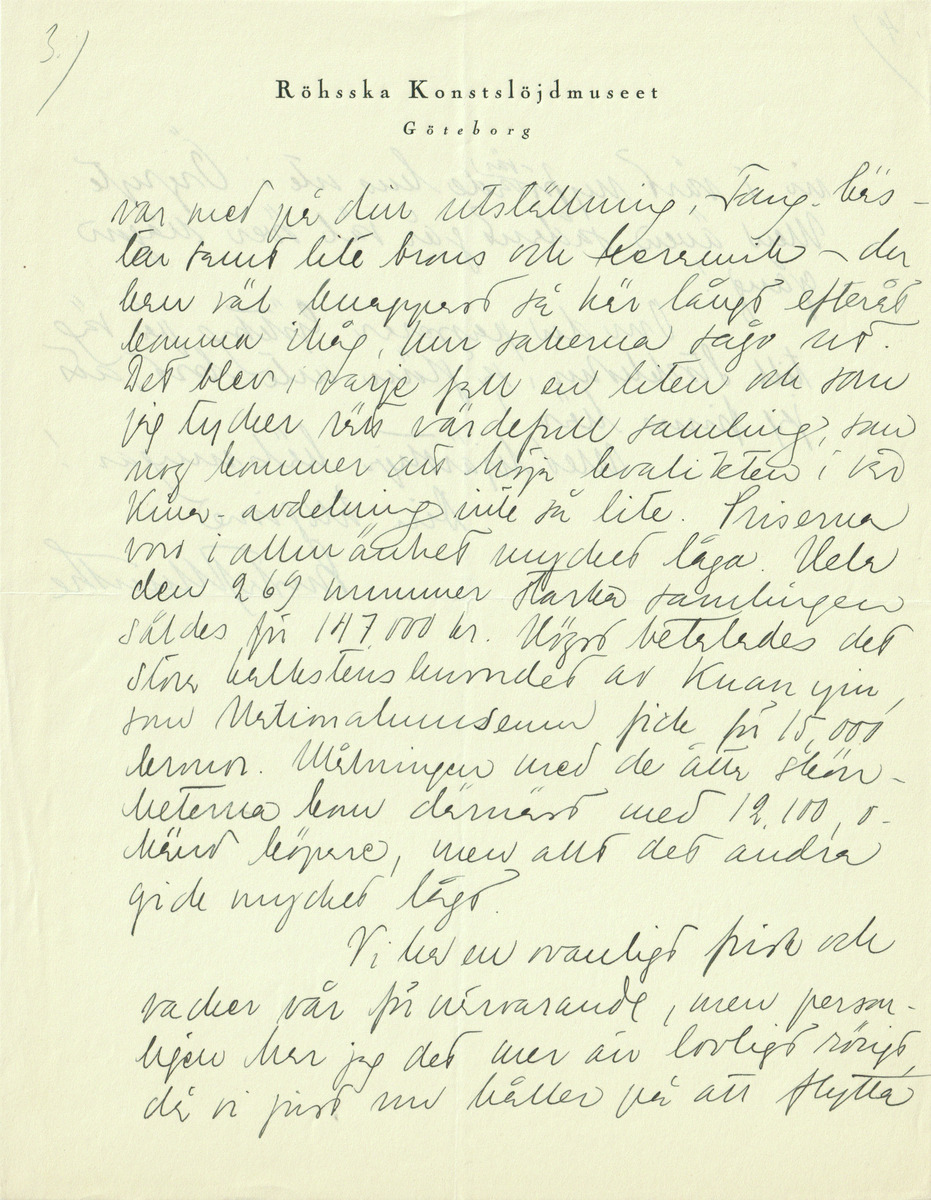 3.)
Röhsska Konstslöjdmuseet
Göteborg
var med på din utställning, Tang-häs-
tar samt lite brons och keramik – du
kan väl knappast så här långt efteråt
komma ihåg, hur sakerna sågo ut.
Det blev i varje fall en liten och som
jag tycker rätt värdefull samling, som
nog kommer att höja kvalitéten i vår
Kina-avdelning inte så lite. Priserna
voro i allmänhet mycket låga. Hela
den 269 nummer starka samlingen
såldes för 147.000 kr. Högst betalades det
stora kalkstenshuvudet av Kuan yin,
som Nationalmuseum fick för 15,000
kronor. Målningen med de åtta skön-
heterna kom därnäst med 12.100, o-
känd köpare, men allt det andra
gick mycket lågt.
Vi ha en ovanligt frisk och
vacker vår för närvarande, men person-
ligen har jag det mer än lovligt rörigt,
då vi just nu håller på att flytta